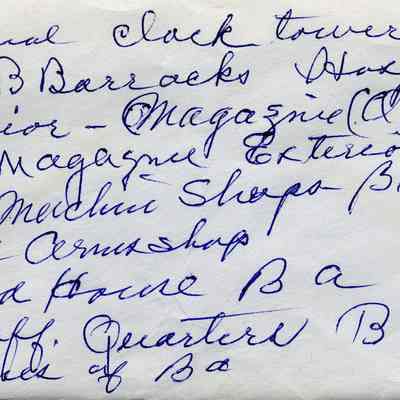 clock tower
B Barracks Hos
ior - Magazine (
Magazine Exterio
Machin Shops B
Armsshop
House B a
ff. Quarters B
of Ba